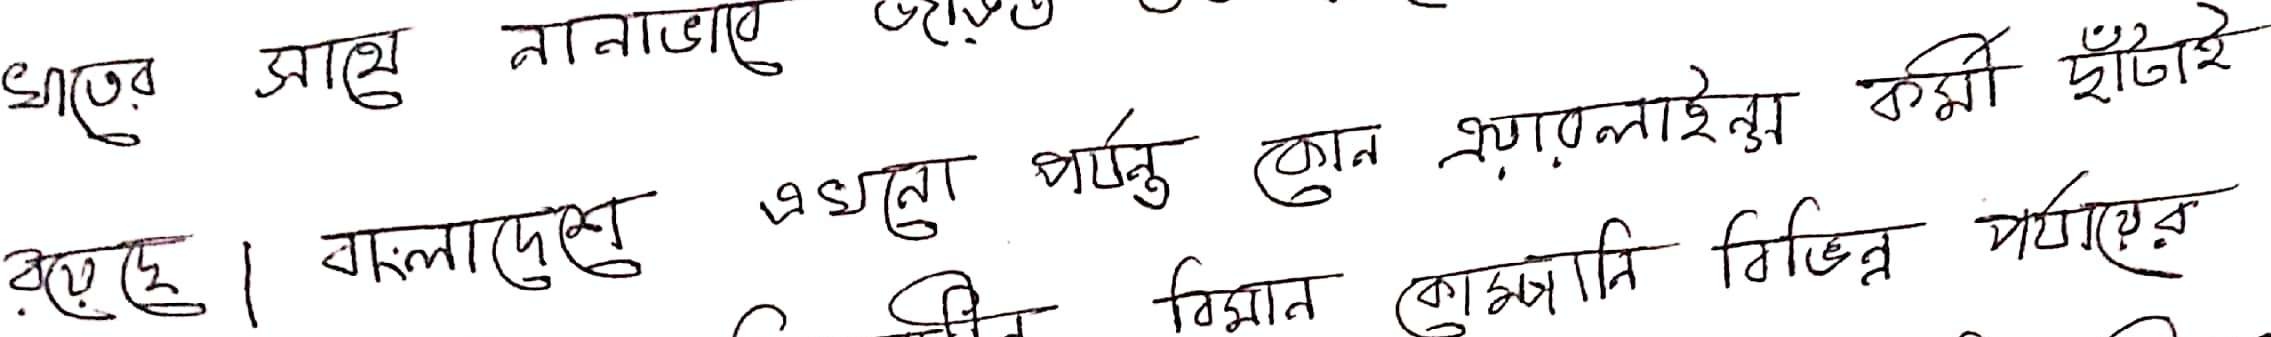 খাতের সাথে নানাভাবে জড়িত
রয়েছে। বাংলাদেশে এখনো পর্যন্ত কোন এয়ারলাইন্স কর্মী ছাঁটাই
বিমান কোম্পানি বিভিন্ন পর্যায়ের